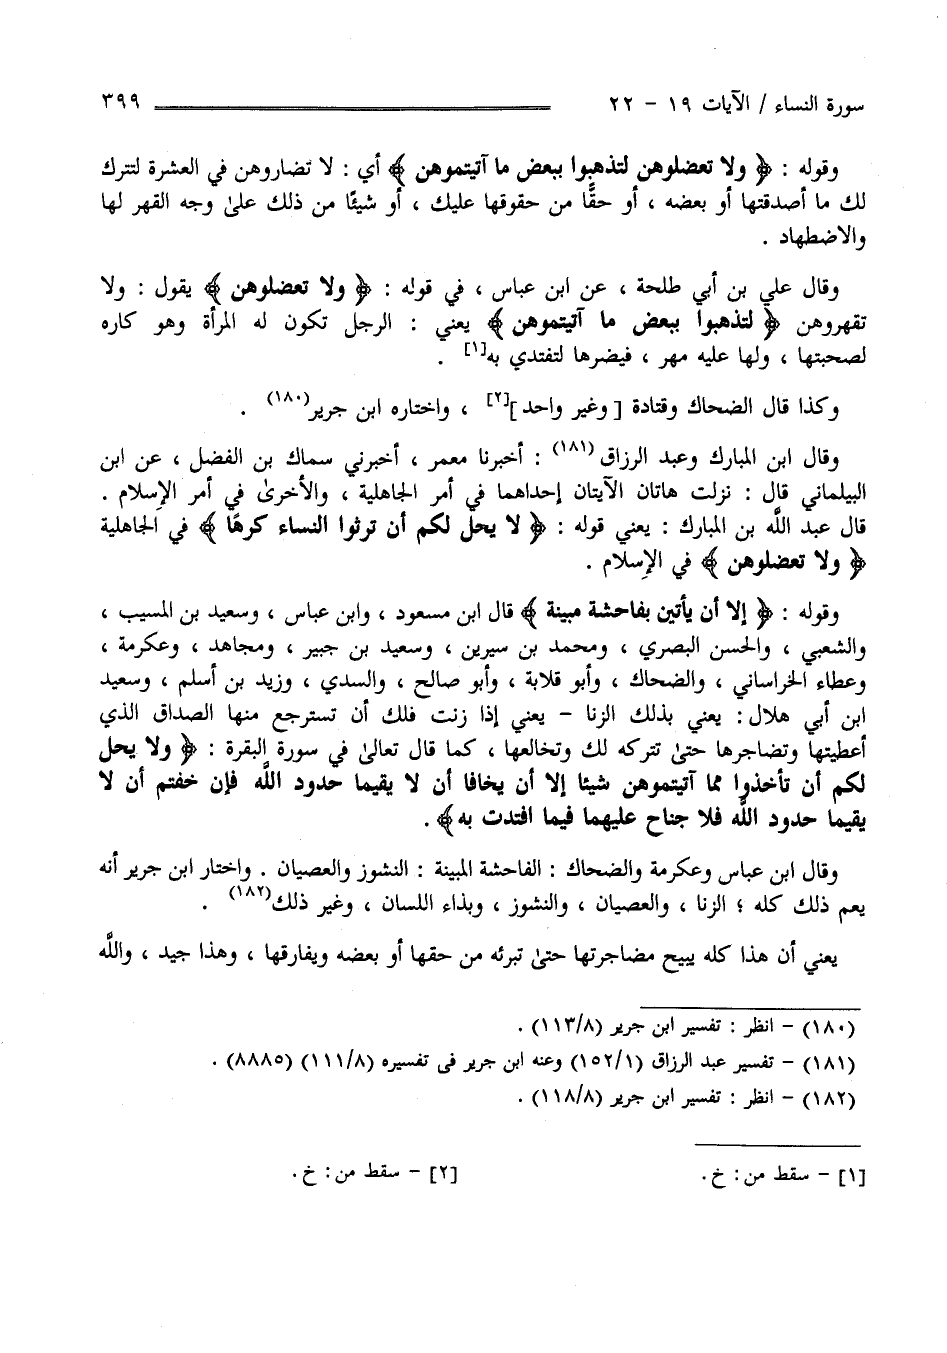 سورة النساء / الآيات ١٩ - ٢٢ ٣٩٩
وقوله : ﴿ ولا تعضلوهن لتذهبوا ببعض ما آتيتموهن ﴾ أي : لا تضاروهن في العشرة لتترك
لك ما أصدقتها أو بعضه ، أو حقًّا من حقوقها عليك ، أو شيئًا من ذلك علىٰ وجه القهر لها
والاضطهاد .
وقال علي بن أبي طلحة ، عن ابن عباس ، في قوله : ﴿ ولا تعضلوهن ﴾ يقول : ولا
تقهروهن ﴿ لتذهبوا ببعض ما آتيتموهن ﴾ يعني : الرجل تكون له المرأة وهو كاره
لصحبتها ، ولها عليه مهر ، فيضرها لتفتدي به[١] .
وكذا قال الضحاك وقتادة [ وغير واحد ][٢] ، واختاره ابن جرير(١٨٠) .
وقال ابن المبارك وعبد الرزاق(١٨١) : أخبرنا معمر ، أخبرني سماك بن الفضل ، عن ابن
البيلماني قال : نزلت هاتان الآيتان إحداهما في أمر الجاهلية ، والأخرىٰ في أمر الإسلام .
قال عبد اللَّه بن المبارك : يعني قوله : ﴿ لا يحل لكم أن ترثوا النساء كرهًا ﴾ في الجاهلية
﴿ ولا تعضلوهن ﴾ في الإسلام .
وقوله : ﴿ إلا أن يأتين بفاحشة مبينة ﴾ قال ابن مسعود ، وابن عباس ، وسعيد بن المسيب ،
والشعبي ، والحسن البصري ، ومحمد بن سيرين ، وسعيد بن جبير ، ومجاهد ، وعكرمة ،
وعطاء الخراساني ، والضحاك ، وأبو قلابة ، وأبو صالح ، والسدي ، وزيد بن أسلم ، وسعيد
ابن أبي هلال : يعني بذلك الزنا - يعني إذا زنت فلك أن تسترجع منها الصداق الذي
أعطيتها وتضاجرها حتىٰ تتركه لك وتخالعها ، كما قال تعالىٰ في سورة البقرة : ﴿ ولا يحل
لكم أن تأخذوا مما آتيتموهن شيئا إلا أن يخافا أن لا يقيما حدود اللَّه فإن خفتم أن لا
يقيما حدود اللَّه فلا جناح عليهما فيما افتدت به ﴾ .
وقال ابن عباس وعكرمة والضحاك : الفاحشة المبينة : النشوز والعصيان . واختار ابن جرير أنه
يعم ذلك كله ؛ الزنا ، والعصيان ، والنشوز ، وبذاء اللسان ، وغير ذلك(١٨٢) .
يعني أن هذا كله يبيح مضاجرتها حتىٰ تبرئه من حقها أو بعضه ويفارقها ، وهذا جيد ، واللَّه
(١٨٠) - انظر : تفسير ابن جرير (١١٣/٨) .
(١٨١) - تفسير عبد الرزاق (١٥٢/١) وعنه ابن جرير فى تفسيره (١١١/٨) (٨٨٨٥) .
(١٨٢) - انظر : تفسير ابن جرير (١١٨/٨) .
[١] - سقط من : خ . [٢] - سقط من : خ .